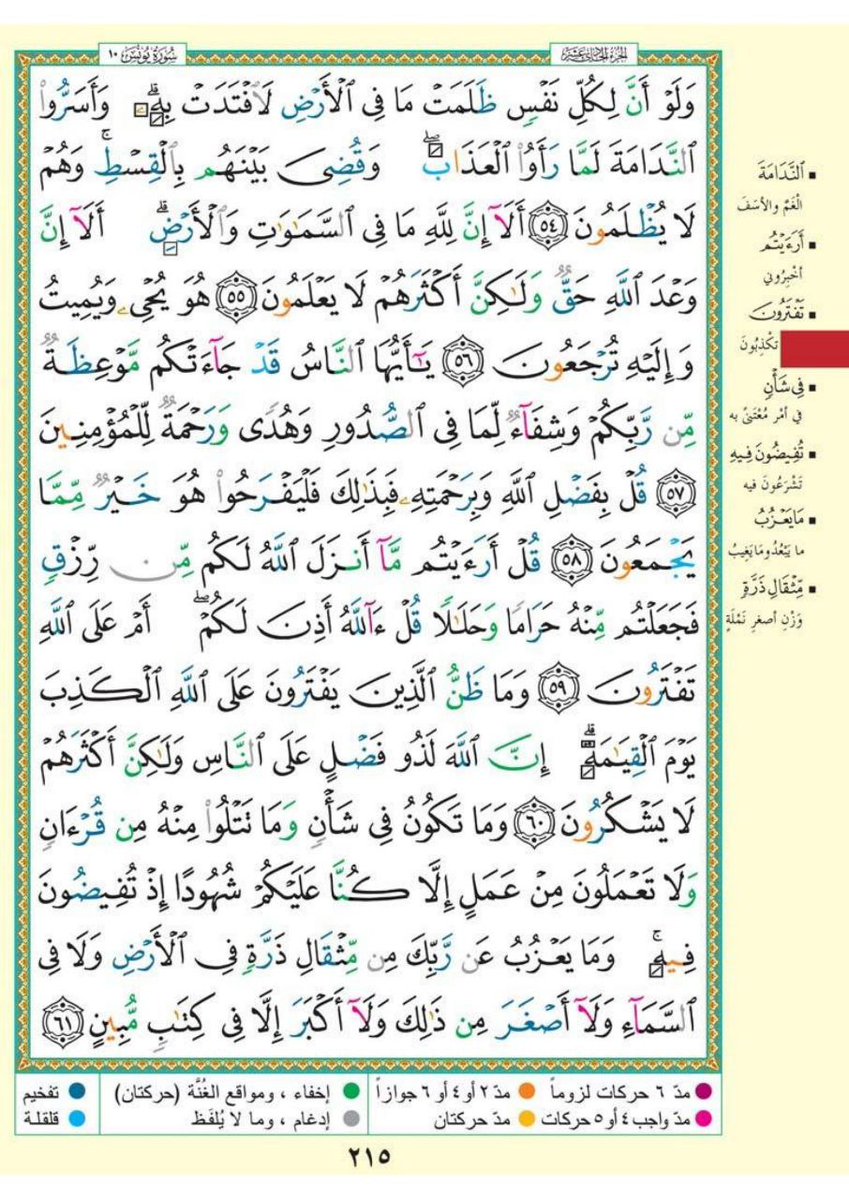 سُورَةُ يُونُسَ ١٠
الجُزءُ الحَادِي عَشَرَ
وَلَوْ أَنَّ لِكُلِّ نَفْسٍ ظَلَمَتْ مَا فِى ٱلْأَرْضِ لَٱفْتَدَتْ بِهِۦ ۗ وَأَسَرُّوا۟
ٱلنَّدَامَةَ لَمَّا رَأَوُا۟ ٱلْعَذَابَ ۖ وَقُضِىَ بَيْنَهُم بِٱلْقِسْطِ ۚ وَهُمْ
لَا يُظْلَمُونَ ٥٤ أَلَآ إِنَّ لِلَّهِ مَا فِى ٱلسَّمَـٰوَٰتِ وَٱلْأَرْضِ ۗ أَلَآ إِنَّ
وَعْدَ ٱللَّهِ حَقٌّ وَلَـٰكِنَّ أَكْثَرَهُمْ لَا يَعْلَمُونَ ٥٥ هُوَ يُحْىِۦ وَيُمِيتُ
وَإِلَيْهِ تُرْجَعُونَ ٥٦ يَـٰٓأَيُّهَا ٱلنَّاسُ قَدْ جَآءَتْكُم مَّوْعِظَةٌ
مِّن رَّبِّكُمْ وَشِفَآءٌ لِّمَا فِى ٱلصُّدُورِ وَهُدًى وَرَحْمَةٌ لِّلْمُؤْمِنِينَ
٥٧ قُلْ بِفَضْلِ ٱللَّهِ وَبِرَحْمَتِهِۦ فَبِذَٰلِكَ فَلْيَفْرَحُوا۟ هُوَ خَيْرٌ مِّمَّا
يَجْمَعُونَ ٥٨ قُلْ أَرَءَيْتُم مَّآ أَنزَلَ ٱللَّهُ لَكُم مِّن رِّزْقٍ
فَجَعَلْتُم مِّنْهُ حَرَامًا وَحَلَـٰلًا قُلْ ءَآللَّهُ أَذِنَ لَكُمْ ۖ أَمْ عَلَى ٱللَّهِ
تَفْتَرُونَ ٥٩ وَمَا ظَنُّ ٱلَّذِينَ يَفْتَرُونَ عَلَى ٱللَّهِ ٱلْكَذِبَ
يَوْمَ ٱلْقِيَـٰمَةِ ۗ إِنَّ ٱللَّهَ لَذُو فَضْلٍ عَلَى ٱلنَّاسِ وَلَـٰكِنَّ أَكْثَرَهُمْ
لَا يَشْكُرُونَ ٦٠ وَمَا تَكُونُ فِى شَأْنٍ وَمَا تَتْلُوا۟ مِنْهُ مِن قُرْءَانٍ
وَلَا تَعْمَلُونَ مِنْ عَمَلٍ إِلَّا كُنَّا عَلَيْكُمْ شُهُودًا إِذْ تُفِيضُونَ
فِيهِ ۚ وَمَا يَعْزُبُ عَن رَّبِّكَ مِن مِّثْقَالِ ذَرَّةٍ فِى ٱلْأَرْضِ وَلَا فِى
ٱلسَّمَآءِ وَلَآ أَصْغَرَ مِن ذَٰلِكَ وَلَآ أَكْبَرَ إِلَّا فِى كِتَـٰبٍ مُّبِينٍ ٦١
▪ ٱلنَّدَامَةَ
الْغَمَّ والأسَفَ
▪ أَرَءَيْتُم
أخبِرُوني
▪ تَفْتَرُونَ
تَكْذِبُونَ
▪ فِى شَأْنٍ
في أمْر مُعْتَنىً به
▪ تُفِيضُونَ فِيهِ
تَشْرَعُونَ فيه
▪ مَا يَعْزُبُ
ما يَبْعُدُ وما يَغِيبُ
▪ مِّثْقَالِ ذَرَّةٍ
وَزْنِ أصغرِ نَمْلَةٍ
مدّ ٦ حركات لزوماً ● مدّ ٢ أو ٤ أو ٦ جوازاً ● إخفاء ، ومواقع الغُنَّة (حركتان) ● تفخيم
مدّ واجب ٤ أو ٥ حركات ● مدّ حركتان ● إدغام ، وما لا يُلفَظ ● قلقلة
٢١٥